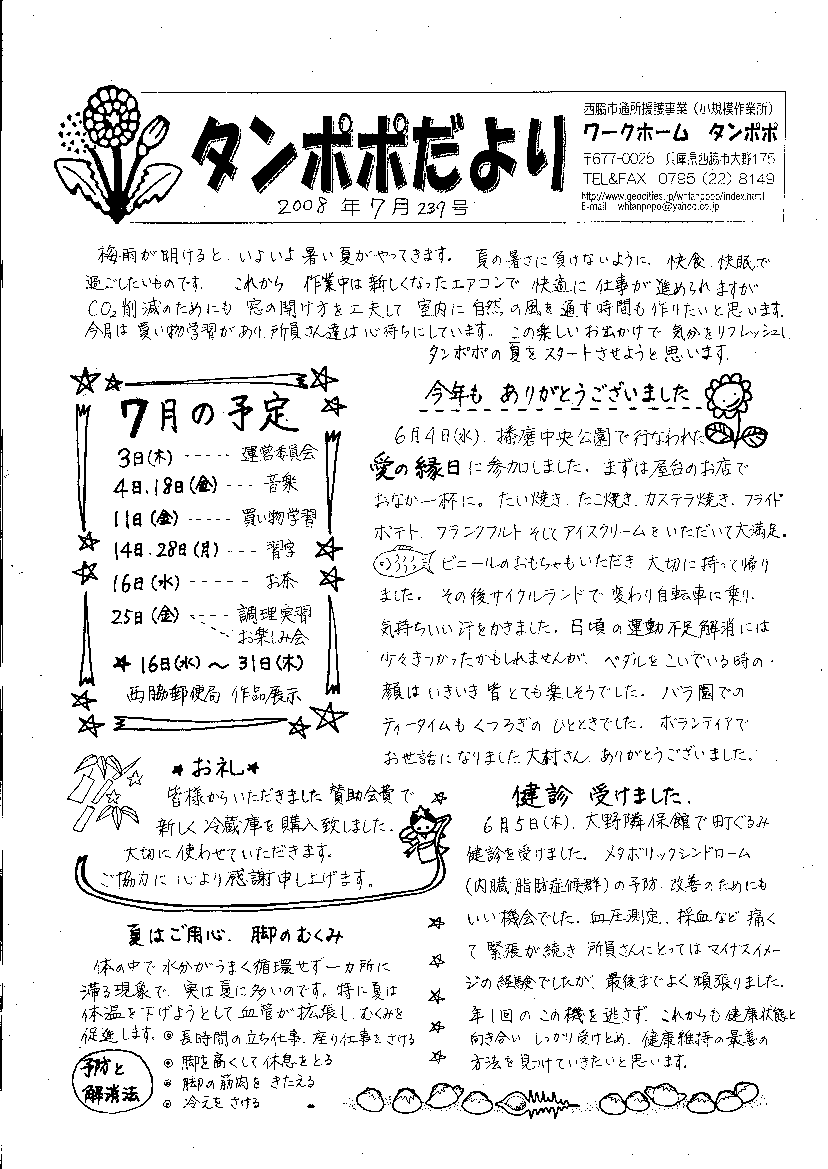 タンポポだより
2008年7月239号
西脇市通所援護事業（小規模作業所）
ワークホーム タンポポ
〒677-0026 兵庫県西脇市大野175
TEL&FAX 0795(22)8149
http://www.geocities.jp/whtanpopo/index.html
E-mail whtanpopo@yahoo.co.jp
梅雨が明けると、いよいよ暑い夏がやってきます。夏の暑さに負けないように、快食、快眠で
過ごしたいものです。これから 作業中は新しくなったエアコンで 快適に仕事が進められますが
CO2削減のためにも 窓の開け方を工夫して 室内に自然の風を通す時間も作りたいと思います。
今月は買い物学習があり、所員さん達は心待ちにしています。この楽しいお出かけで 気分をリフレッシュし、
タンポポの夏をスタートさせようと思います。
7月の予定
3日(木) ----- 運営委員会
4日、18日(金) --- 音楽
11日(金) ----- 買い物学習
14日、28日(月) --- 習字
16日(水) ----- お茶
25日(金) ---- 調理実習
お楽しみ会
★16日(水)～31日(木)
西脇郵便局 作品展示
★お礼★
皆様からいただきました賛助会費で
新しく冷蔵庫を購入致しました。
大切に使わせていただきます。
ご協力に心より感謝申し上げます。
夏はご用心、脚のむくみ
体の中で水分がうまく循環せず一カ所に
滞る現象で、実は夏に多いのです。特に夏は
体温を下げようとして血管が拡張し、むくみを
促進します。◎長時間の立ち仕事、座り仕事をさける
予防と
解消法
◎脚を高くして休息をとる
◎脚の筋肉をきたえる
◎冷えをさける
今年も ありがとうございました
6月4日(水)、播磨中央公園で行なわれた
愛の縁日に参加しました。まずは屋台のお店で
おなか一杯に。たい焼き、たこ焼き、カステラ焼き、フライド
ポテト、フランクフルト そしてアイスクリームをいただいて大満足。
ビニールのおもちゃもいただき 大切に持って帰り
ました。その後サイクルランドで 変わり自転車に乗り、
気持ちいい汗をかきました。日頃の運動不足解消には
少々きつかったかもしれませんが、ペダルをこいでいる時の
顔はいきいき皆とても楽しそうでした。バラ園での
ティータイムもくつろぎのひとときでした。ボランティアで
お世話になりました大村さん、ありがとうございました。
健診 受けました。
6月5日(木)、大野隣保館で町ぐるみ
健診を受けました。メタボリックシンドローム
(内臓脂肪症候群)の予防、改善のためにも
いい機会でした。血圧測定、採血など 痛く
て緊張が続き 所員さんにとってはマイナスイメー
ジの経験でしたが、最後までよく頑張りました。
年1回のこの機を逃さず、これからも健康状態と
向き合い しっかり受けとめ、健康維持の最善の
方法を見つけていきたいと思います。